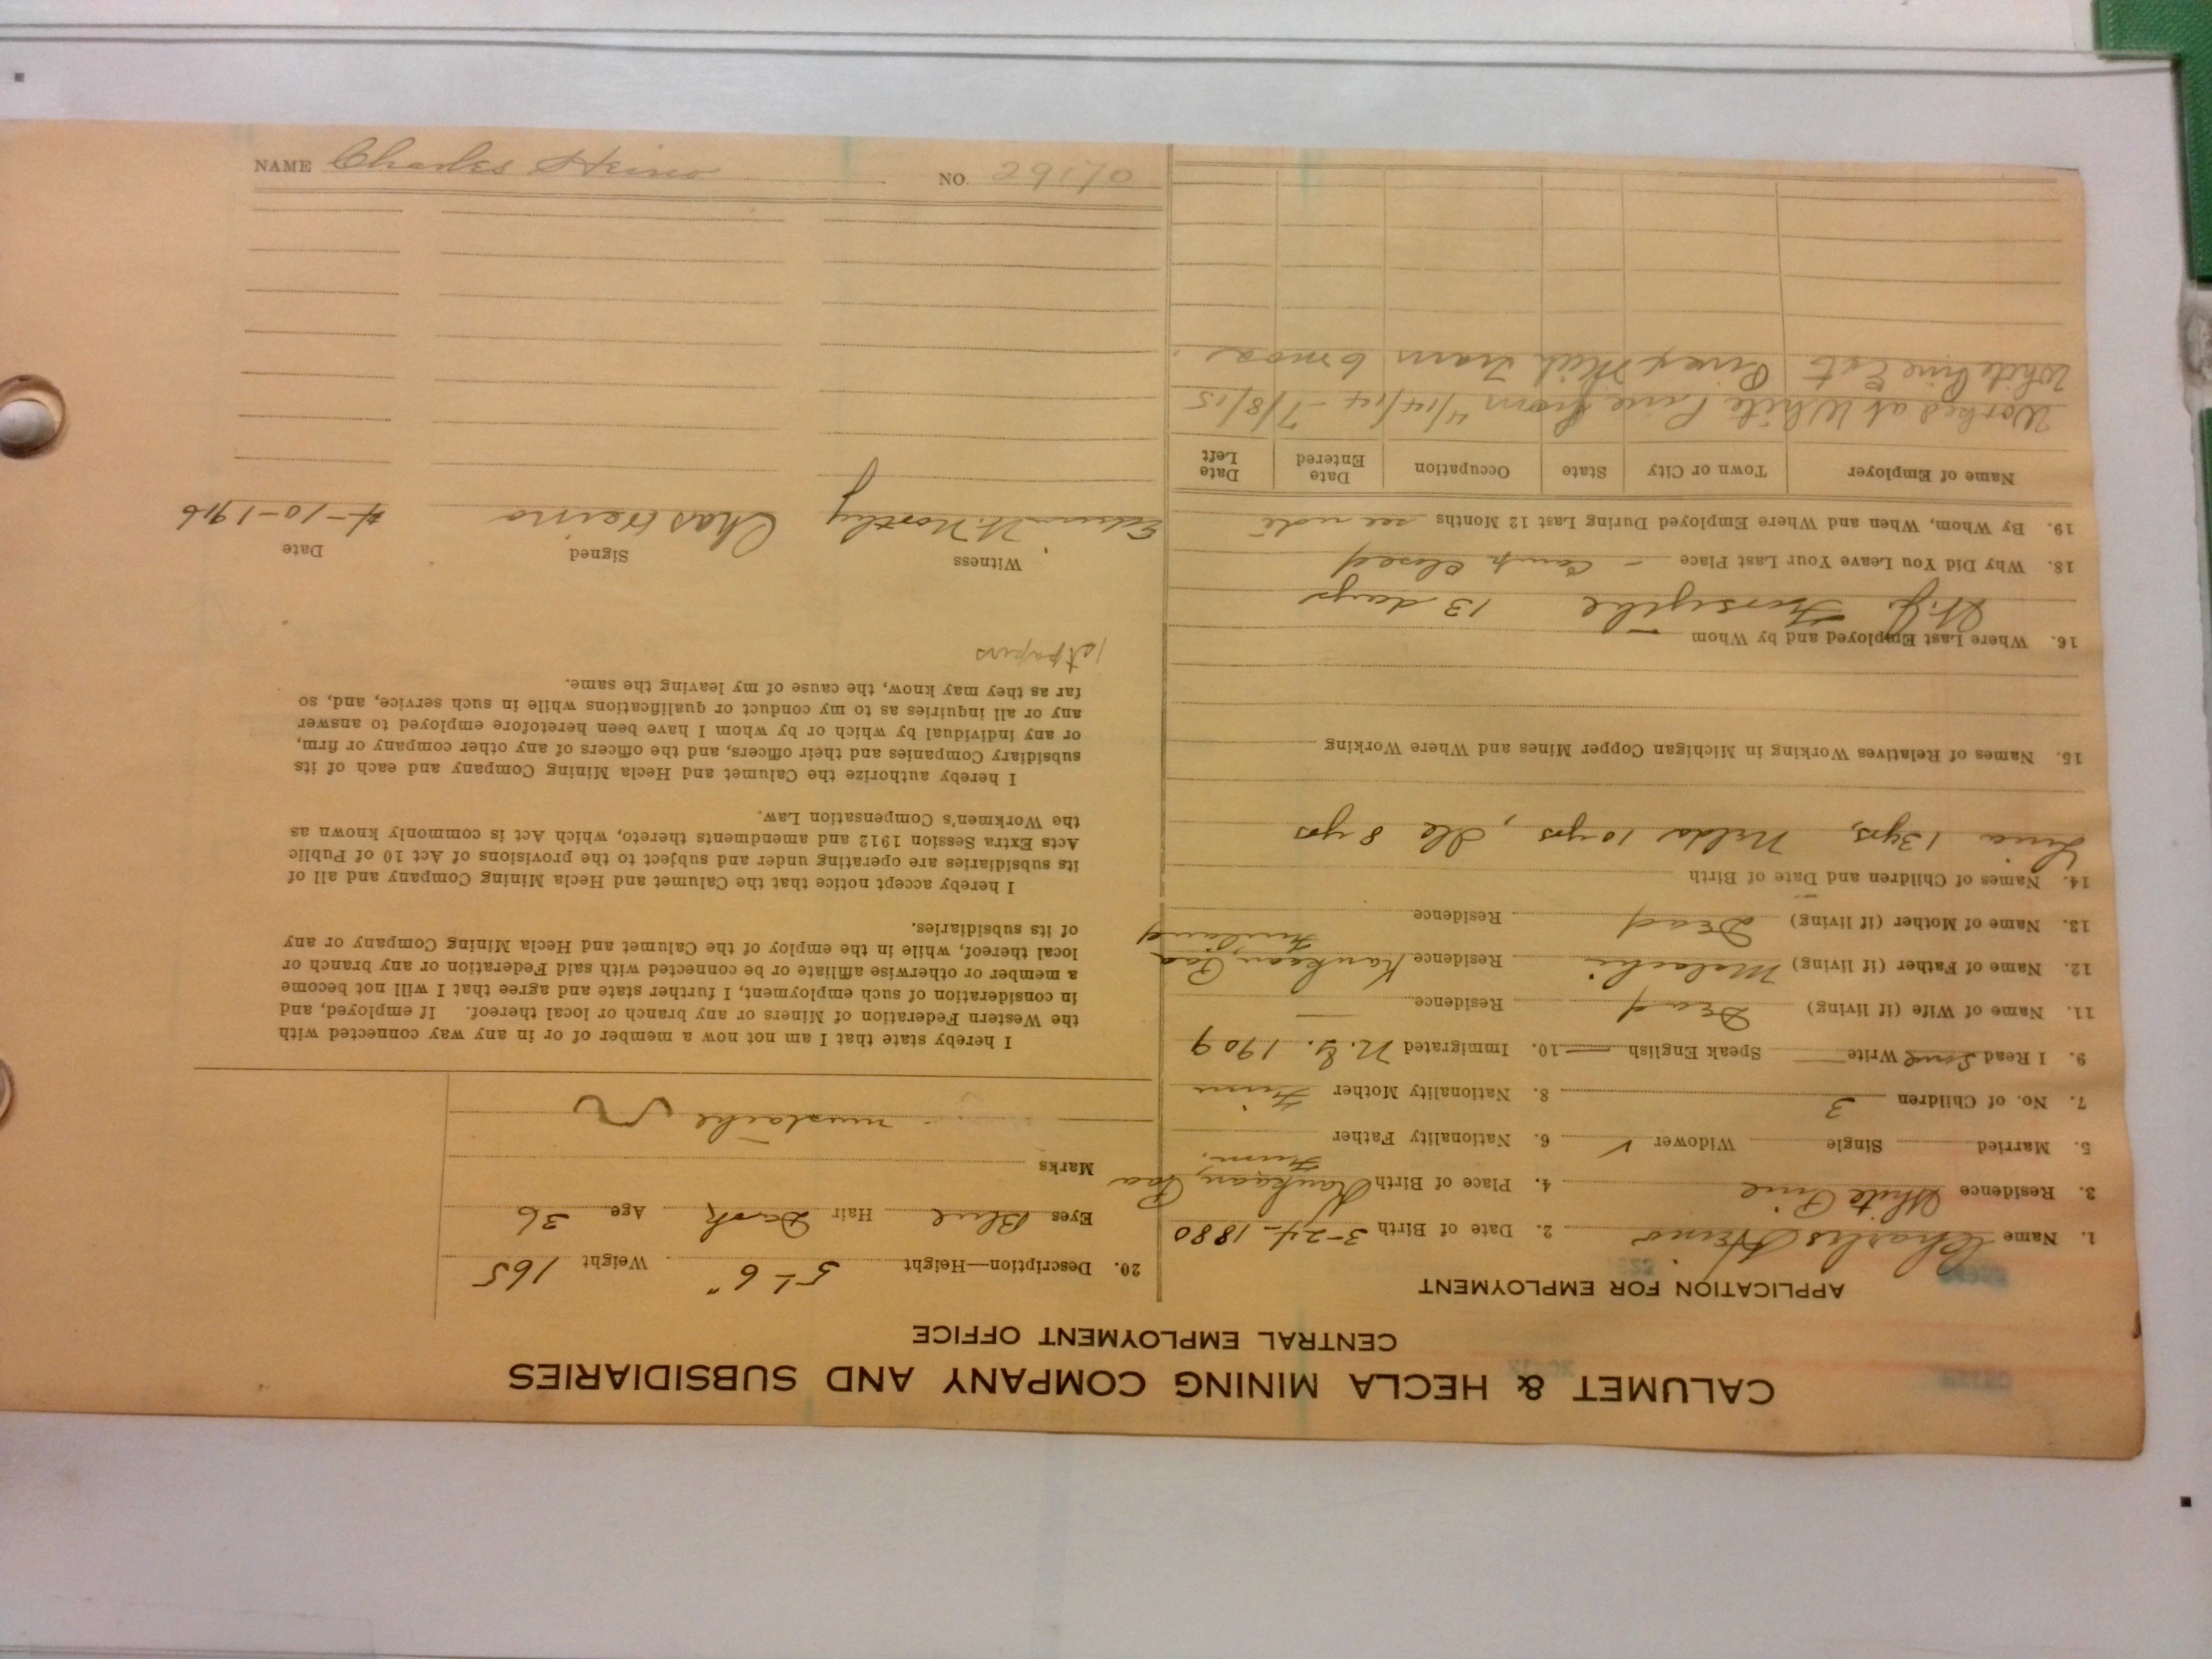 CALUMET & HECLA MINING COMPANY AND SUBSIDIARIES
CENTRAL EMPLOYMENT OFFICE
APPLICATION FOR EMPLOYMENT
1. Name Charles Heino 2. Date of Birth 3-24-1880
3. Residence White Pine 4. Place of Birth Kaukaan, Paa
Finn.
5. Married Single Widower ✓ 6. Nationality Father
7. No. of Children 3 8. Nationality Mother Finn
9. I Read Write Speak English 10. Immigrated N.Y. 1909
11. Name of Wife (if living) Dead Residence
12. Name of Father (if living) Malachi Residence Kaukaan, Paa
Finland
13. Name of Mother (if living) Dead Residence
14. Names of Children and Date of Birth
13 yrs, Nilda 10 yrs, 8 yrs
15. Names of Relatives Working in Michigan Copper Mines and Where Working
16. Where Last Employed and by Whom
Forsythe 13 days
18. Why Did You Leave Your Last Place - camp closed
19. By Whom, When and Where Employed During Last 12 Months see note
Name of Employer Town or City State Occupation Date Entered Date Left
Worked at White Pine from 4/14/14 - 7/8/15
White Pine Ext Mich Tram 6 mos.
20. Description—Height 5'-6" Weight 165
Eyes Blue Hair Dark Age 36
Marks
mustache
I hereby state that I am not now a member of or in any way connected with
the Western Federation of Miners or any branch or local thereof. If employed, and
in consideration of such employment, I further state and agree that I will not become
a member or otherwise affiliate or be connected with said Federation or any branch or
local thereof, while in the employ of the Calumet and Hecla Mining Company or any
of its subsidiaries.
I hereby accept notice that the Calumet and Hecla Mining Company and all of
its subsidiaries are operating under and subject to the provisions of Act 10 of Public
Acts Extra Session 1912 and amendments thereto, which Act is commonly known as
the Workmen's Compensation Law.
I hereby authorize the Calumet and Hecla Mining Company and each of its
subsidiary Companies and their officers, and the officers of any other company or firm,
or any individual by which or by whom I have been heretofore employed to answer
any or all inquiries as to my conduct or qualifications while in such service, and, so
far as they may know, the cause of my leaving the same.
1st papers
Witness Signed Date
Northy Chas Heino 4-10-1916
NAME Charles Heino NO. 29170